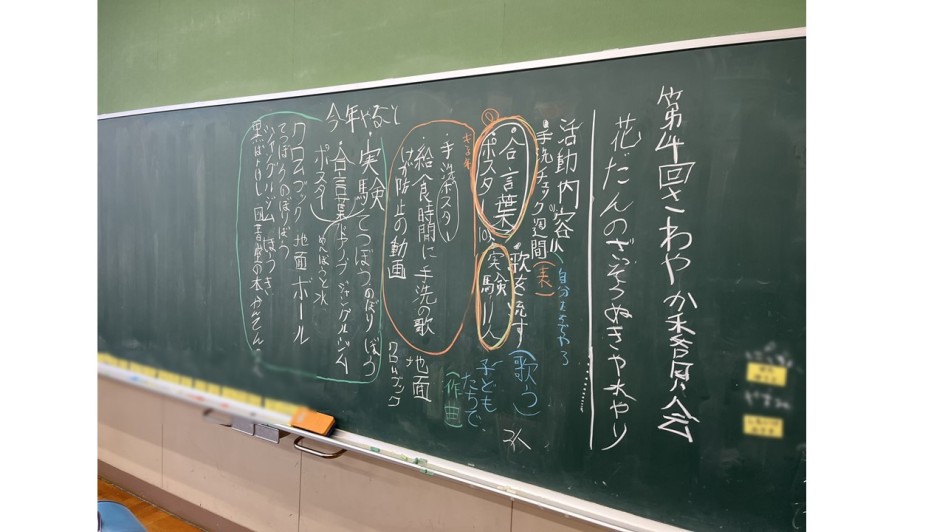 第4回さわやか委員会
花だんのざっそうぬきや水やり
活動内容
自分たちでやろ
手洗チェック週間(実)
歌を流す(歌う)
合言葉
実験
ポスター
子どもたちで(作曲)
手洗ポスター
給食時間に手洗の歌
けが防止の動画
地面
クロムブック
今年やること
・実験 てつぼうのぼり ぼう
・合言葉 ドアノブ ジャングルジム
ポスター めんぼうと水
クロムブック 地面 ボール
てつぼう のぼりぼう
ジャングルジム ほうき
図書室の本 かんてん